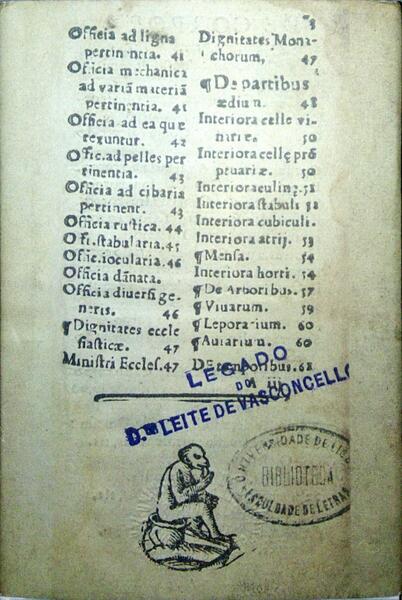 Officia ad ligna
pertinentia. 41
Officia mechanica
ad variā materiā
pertinentia. 41
Officia ad ea quæ
texuntur. 42
Offic. ad pelles per
tinentia. 43
Officia ad cibaria
pertinent. 43
Officia rustica. 44
Offi. stabularia. 45
Offic. iocularia. 46
Officia dānata.
Officia diuersi ge-
neris. 46
¶ Dignitates eccle
siasticæ. 47
Ministri Eccles. 47
Dignitates Mona-
chorum, 47
¶ De partibus
ædium. 48
Interiora celle vi-
nariæ. 50
Interiora cellę prō
ptuariæ. 50
Interiora culinę. 51
Interiora stabuli 52
Interiora cubiculi.
Interiora atrij. 53
¶ Mensa. 54
Interiora horti. 54
¶ De Arboribus. 57
¶ Viuarum. 59
¶ Leporarium. 60
¶ Auiarium. 60
De temporibus. 61
iij
LEGADO
DO
D.or LEITE DE VASCONCELLO
UNIVERSIDADE DE
BIBLIOTECA
FACULDADE DE LETRAS